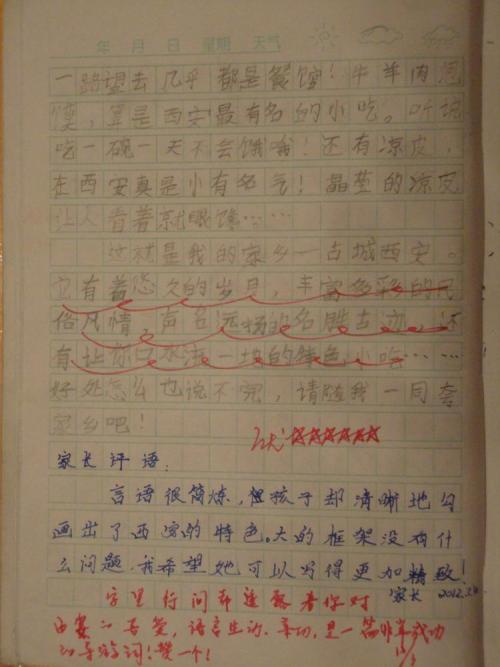 年 月 日 星期 天气
一路望去几乎都是餐馆!牛羊肉泡
馍,算是西安最有名的小吃。听说
吃一碗一天不会饿哦!还有凉皮,
在西安真是小有名气!晶莹的凉皮
让人看着就眼馋……
这就是我的家乡—古城西安。
它有着悠久的岁月,丰富多彩的民
俗风情,声名远扬的名胜古迹,还
有让你口水流一地的特色小吃……
好处怎么也说不完,请随我一同夸
家乡吧!
优☆☆☆☆☆☆
家长评语:
言语很简炼,但孩子却清晰地勾
画出了西安的特色。大的框架没有什
么问题,我希望她可以写得更加精致!
家长 2012.3.
字里行间都透露着你对
西安的喜爱,语言生动、亲切,是一篇非常成功
的导游词!赞一个!